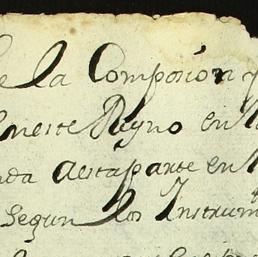 de la Composicion q
en este Reyno en l
nda aestaparte en l
Segun los Instrum